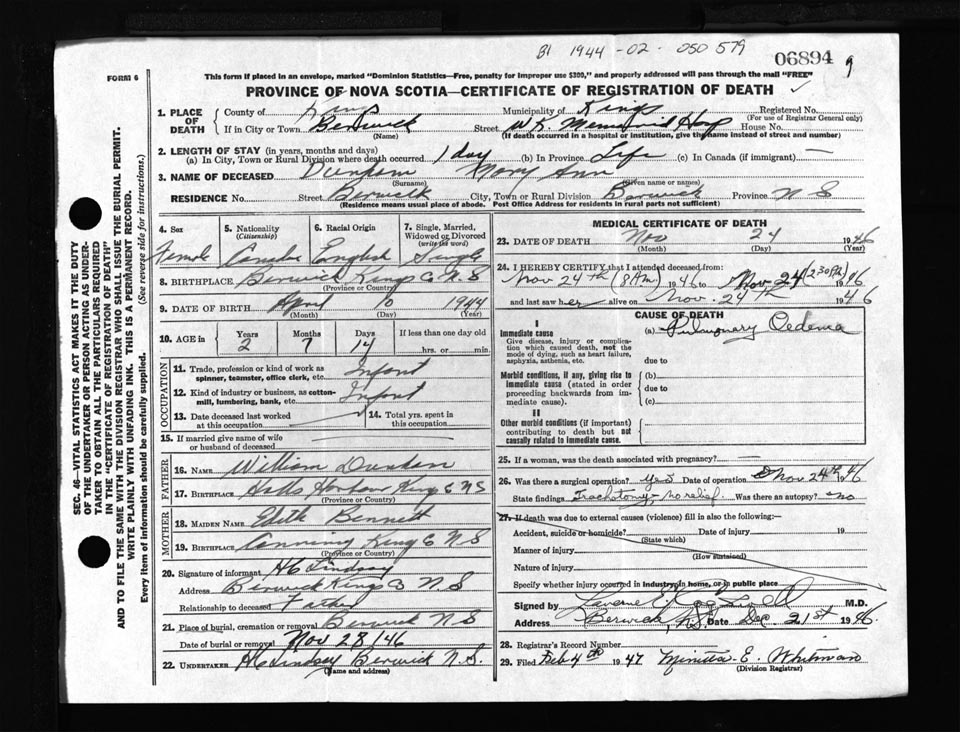 B1 1944-02-050579
06894 9
FORM 6
This form if placed in an envelope, marked "Dominion Statistics—Free, penalty for improper use $300," and properly addressed will pass through the mail "FREE"
PROVINCE OF NOVA SCOTIA—CERTIFICATE OF REGISTRATION OF DEATH
SEC. 46—VITAL STATISTICS ACT MAKES IT THE DUTY
OF THE UNDERTAKER OR PERSON ACTING AS UNDER-
TAKER TO OBTAIN ALL THE PARTICULARS REQUIRED
IN THE "CERTIFICATE OF REGISTRATION OF DEATH"
AND TO FILE THE SAME WITH THE DIVISION REGISTRAR WHO SHALL ISSUE THE BURIAL PERMIT.
WRITE PLAINLY WITH UNFADING INK. THIS IS A PERMANENT RECORD.
Every item of information should be carefully supplied. (See reverse side for instructions.)
1. PLACE OF DEATH
County of Kings Municipality of Kings Registered No.
(For use of Registrar General only)
If in City or Town Berwick Street W.K. Memorial Hosp House No.
(Name) (If death occurred in a hospital or institution, give the name instead of street and number)
2. LENGTH OF STAY (in years, months and days)
(a) In City, Town or Rural Division where death occurred 1 day (b) In Province Life (c) In Canada (if immigrant) —
3. NAME OF DECEASED Dunham Mary Ann
(Surname) (Given name or names)
RESIDENCE No. Street Berwick City, Town or Rural Division Berwick Province N S
(Residence means usual place of abode. Post Office Address for residents in rural parts not sufficient)
4. Sex Female
5. Nationality (Citizenship) Canada
6. Racial Origin English
7. Single, Married, Widowed or Divorced (write the word) Single
8. BIRTHPLACE Berwick Kings Co N.S
(Province or Country)
9. DATE OF BIRTH April 10 1944
(Month) (Day) (Year)
10. AGE in Years 2 Months 7 Days 14 If less than one day old hrs. or min.
OCCUPATION
11. Trade, profession or kind of work as spinner, teamster, office clerk, etc. Infant
12. Kind of industry or business, as cotton-mill, lumbering, bank, etc. Infant
13. Date deceased last worked at this occupation
14. Total yrs. spent in this occupation
15. If married give name of wife or husband of deceased
FATHER
16. NAME William Dunham
17. BIRTHPLACE Halls Harbour Kings Co NS
MOTHER
18. MAIDEN NAME Edith Bennett
19. BIRTHPLACE Canning Kings Co N.S
(Province or Country)
20. Signature of informant H C Lindsay
Address Berwick Kings Co N.S
Relationship to deceased Father
21. Place of burial, cremation or removal Berwick N S
Date of burial or removal Nov 28/46
22. UNDERTAKER H C Lindsay Berwick N.S.
(Name and address)
MEDICAL CERTIFICATE OF DEATH
23. DATE OF DEATH Nov 24 1946
(Month) (Day) (Year)
24. I HEREBY CERTIFY that I attended deceased from:
Nov 24th (8 AM) 1946 to Nov. 24 (2:30 PM) 1946
and last saw her alive on Nov. 24th 1946
CAUSE OF DEATH
I
Immediate cause
Give disease, injury or complication which caused death, not the mode of dying, such as heart failure, asphyxia, asthenia, etc.
(a) Pulmonary Oedema
due to
Morbid conditions, if any, giving rise to immediate cause (stated in order proceeding backwards from immediate cause).
(b)
due to
(c)
II
Other morbid conditions (if important) contributing to death but not causally related to immediate cause.
25. If a woman, was the death associated with pregnancy? —
26. Was there a surgical operation? yes Date of operation Nov 24th 1946
State findings Trachotomy - no relief Was there an autopsy? no
27. If death was due to external causes (violence) fill in also the following:—
Accident, suicide or homicide? Date of injury 19
(State which)
Manner of injury
(How sustained)
Nature of injury
Specify whether injury occurred in industry, in home, or in public place
Signed by M.D.
Address Berwick, N.S. Date Dec. 21st 1946.
28. Registrar's Record Number
29. Filed Feb 4th 1947 E. Whitman
(Division Registrar)